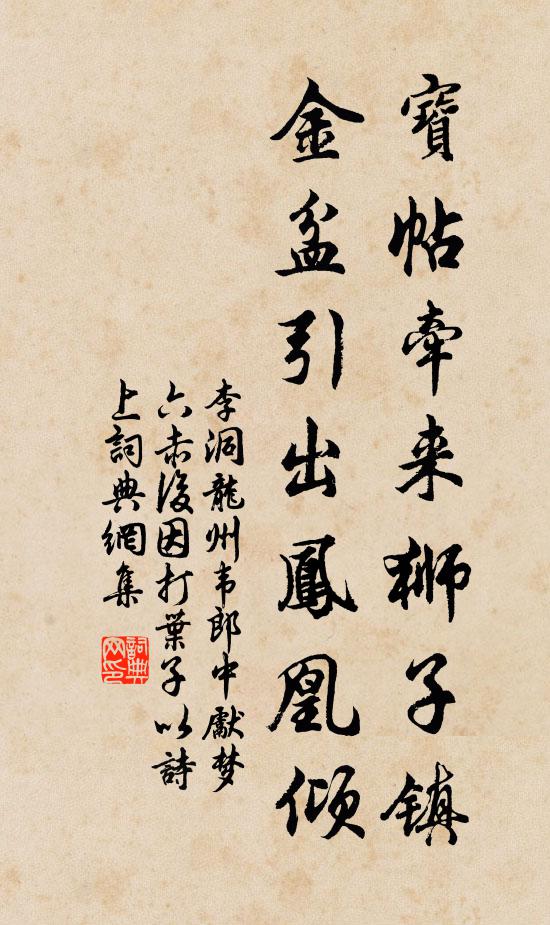 寶帖牽来獅子镇
金盆引出鳳凰倾
李洞龍州韦郎中獻梦
六赤後因打葉子以詩
上詞典網集
詞典网印